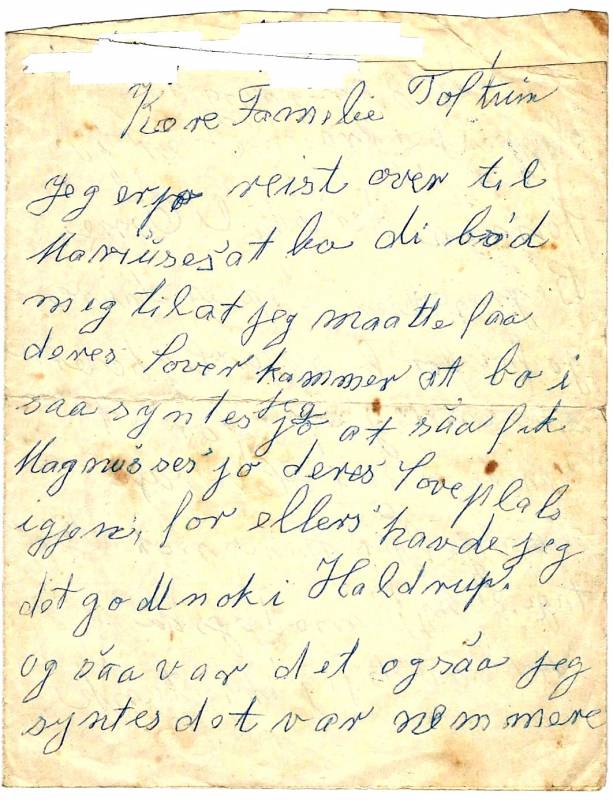 Kære Familie Toftum
Jeg er jo reist over til
Mariuses at bo di bød
meg til at jeg maatte faa
deres sover kammer at bo i
saa syntes jeg jo at såa fik
Magnusses jo deres soveplals
igjen, for ellers havde jeg
det godt nok i Haldrup.
og såa var det ogsåa jeg
syntes det var nemmere